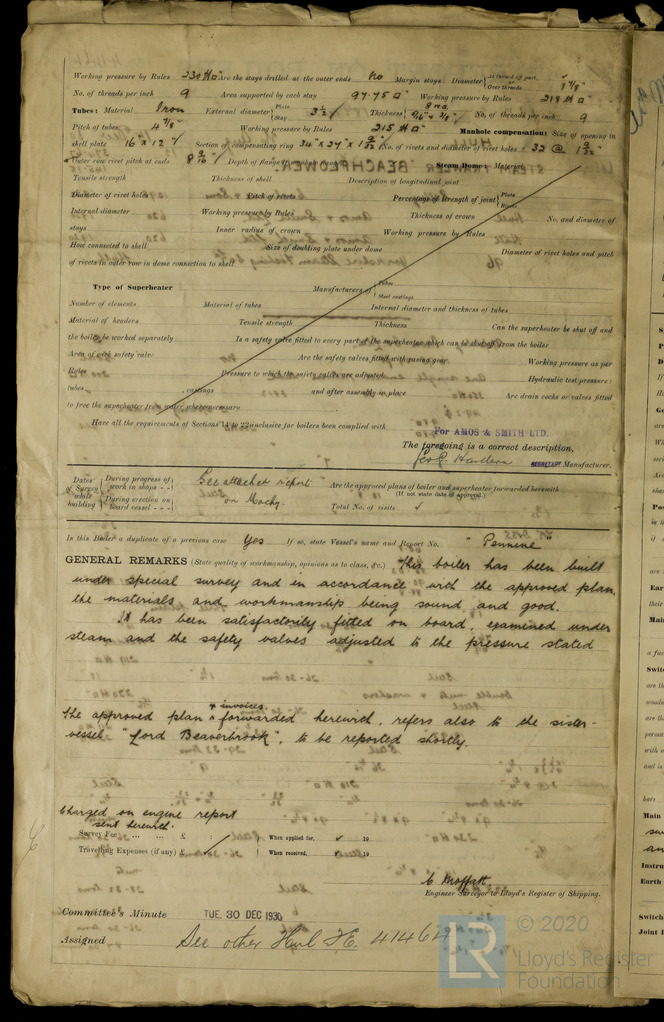 Working pressure by Rules 230 #□" Are the stays drilled at the outer ends No Margin stays: Diameter { At turned off part, or Over threads 1 7/8"
No. of threads per inch 9 Area supported by each stay 97.75 □" Working pressure by Rules 218 #□"
Tubes: Material Iron External diameter { Plain Stay 3½" Thickness { 8 W.G. 5/16" & 3/8" No. of threads per inch 9
Pitch of tubes 4 7/8" Working pressure by Rules 215 #□" Manhole compensation: Size of opening in
shell plate 16" x 12" Section of compensating ring 34" x 27" x 1 9/32" No. of rivets and diameter of rivet holes 32 @ 1 9/32"
Outer row rivet pitch at ends 8 9/16" Depth of flange Steam Dome: Material
Tensile strength Thickness of shell Description of longitudinal joint
Diameter of rivet holes Pitch of rivets Percentage of strength of joint { Plate Rivets
Internal diameter Working pressure by Rules Thickness of crown No. and diameter of
stays Inner radius of crown Working pressure by Rules
How connected to shell Size of doubling plate under dome Diameter of rivet holes and pitch
of rivets in outer row in dome connection to shell
Type of Superheater Manufacturers of { Tubes Steel castings
Number of elements Material of tubes Internal diameter and thickness of tubes
Material of headers Tensile strength Thickness Can the superheater be shut off and
the boiler be worked separately Is a safety valve fitted to every part of the superheater which can be shut off from the boiler
Area of each safety valve Are the safety valves fitted with easing gear Working pressure as per
Rules Pressure to which the safety valves are adjusted Hydraulic test pressure:
tubes castings and after assembly in place Are drain cocks or valves fitted
to free the superheater from water where necessary
Have all the requirements of Sections 14 to 22 inclusive for boilers been complied with
For AMOS & SMITH LTD.
The foregoing is a correct description,
SECRETARY Manufacturer.
Dates of Survey while building { During progress of work in shops - - During erection on board vessel - - - } See attached report on Machy. Are the approved plans of boiler and superheater forwarded herewith (If not state date of approval.)
Total No. of visits ✓
Is this Boiler a duplicate of a previous case Yes If so, state Vessel's name and Report No. "Pennine"
GENERAL REMARKS (State quality of workmanship, opinions as to class, &c.) This boiler has been built
under special survey and in accordance with the approved plan,
the materials and workmanship being sound and good.
It has been satisfactorily fitted on board, examined under
steam and the safety valves adjusted to the pressure stated
The approved plan & invoices forwarded herewith, refers also to the sister-
vessel "Lord Beaverbrook", to be reported shortly.
Charged on engine report
sent herewith.
Survey Fee ... ... £ : : When applied for, ✓ 19
Travelling Expenses (if any) £ : : When received, ✓ 19
C. Moffatt
Engineer Surveyor to Lloyd's Register of Shipping.
Committee's Minute TUE. 30 DEC 1930
Assigned See other Hul F.E. 41464
© 2020
LR Lloyd's Register
Foundation